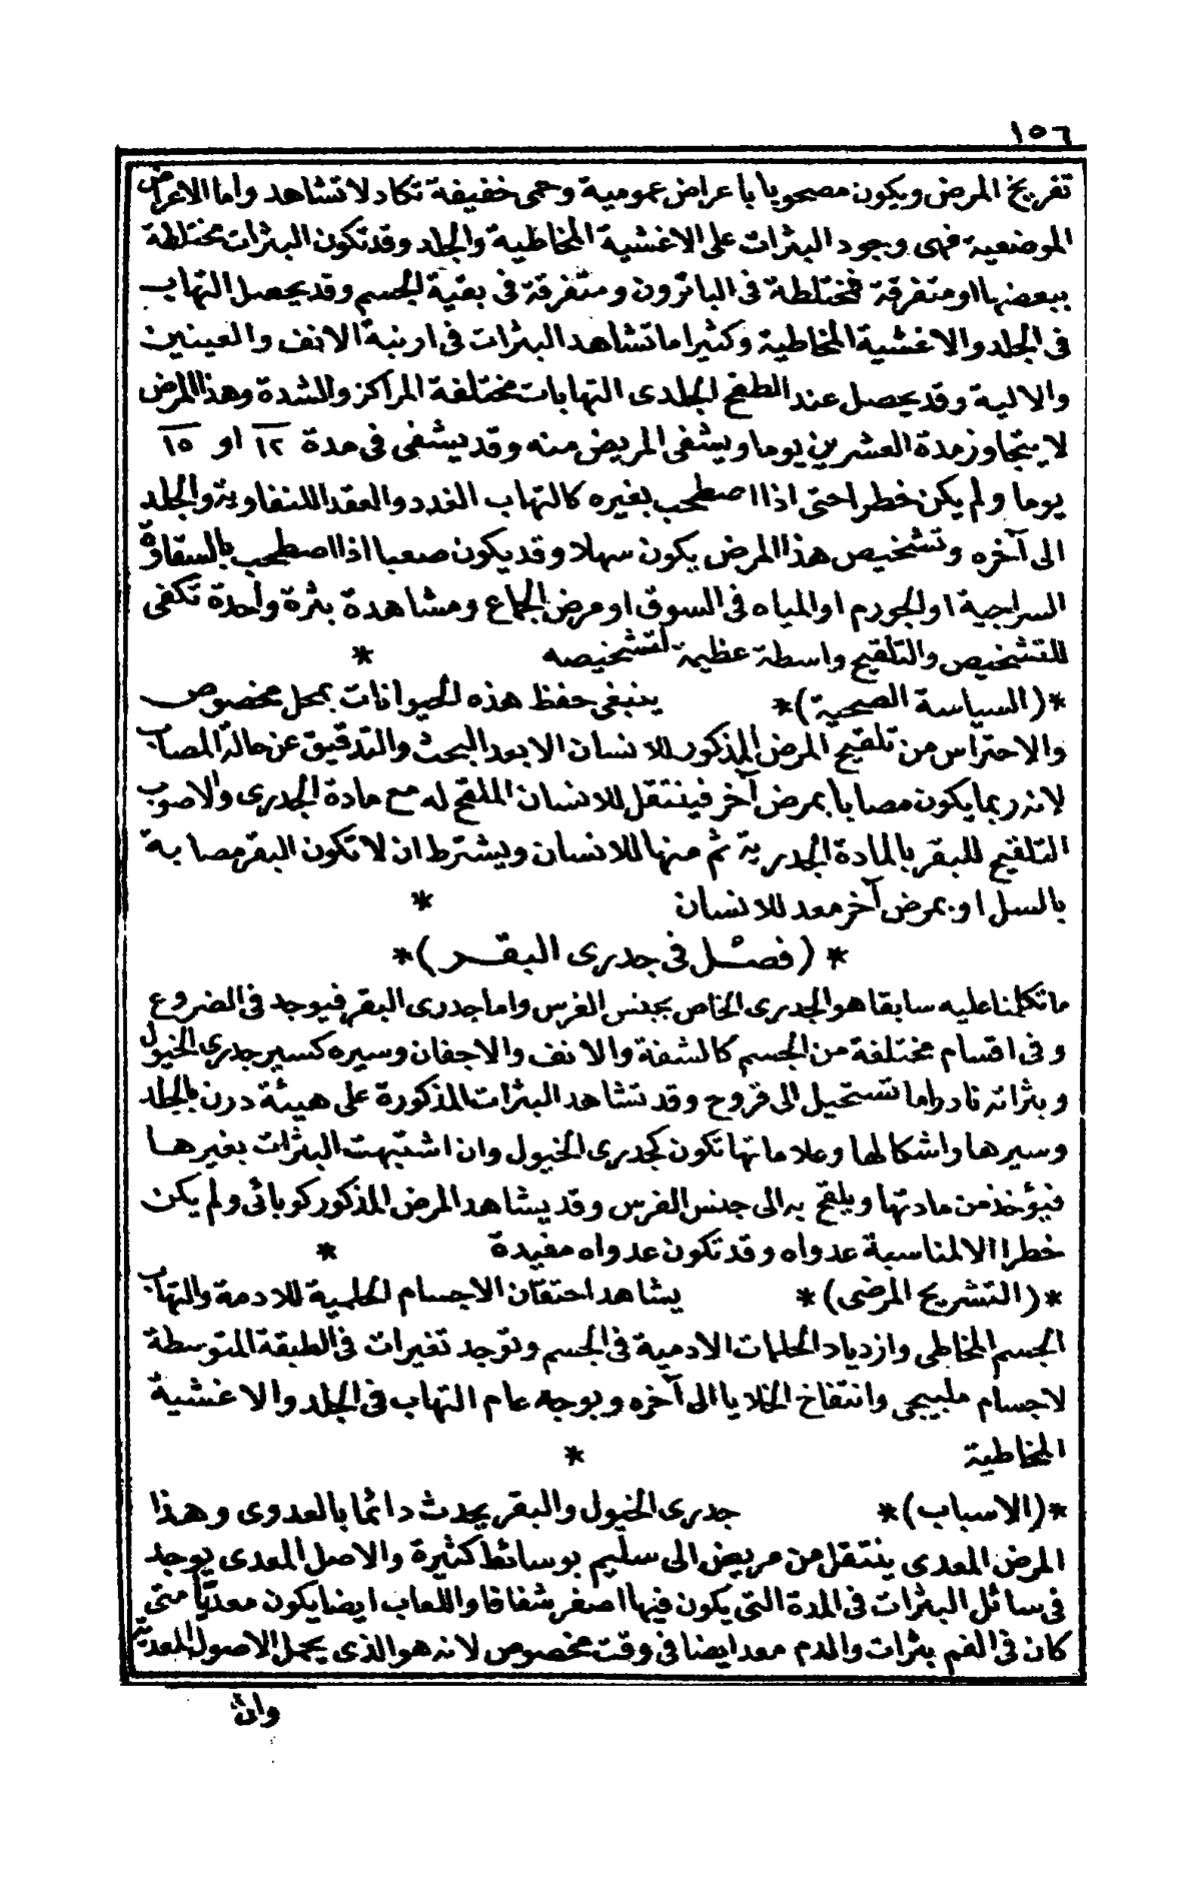 ١٥٦
تفريخ المرض ويكون مصحوبا باعراض عمومية وحمى خفيفة تكاد لا تشاهد واما الاعراض
الموضعية فهى وجود البثرات على الاغشية المخاطية والجلد وقد تكون البثرات مختلطة
ببعضها او متفرقة فمختلطة فى الباترون ومتفرقة فى بقية الجسم وقد يحصل التهاب
فى الجلد والاغشية المخاطية وكثيرا ما تشاهد البثرات فى ارنبة الانف والعينين
والالية وقد يحصل عند الطفح الجلدى التهابات مختلفة المراكز والشدة وهذا المرض
لا يتجاوز مدة العشرين يوما ويشفى المريض منه وقد يشفى فى مدة ١٢ او ١٥
يوما ولم يكن خطرا حتى اذا اصطحب بغيره كالتهاب الغدد والعقد اللنفاوية والجلد
الى آخره وتشخيص هذا المرض يكون سهلا وقد يكون صعبا اذا اصطحب بالسقاوة
السراجية او الجورم او المياه فى السوق او مرض الجماع ومشاهدة بثرة واحدة تكفى
للتشخيص والتلقيح واسطة عظيمة لتشخيصه *
*(السياسة الصحية)* ينبغى حفظ هذه الحيوانات بمحل مخصوص
والاحتراس من تلقيح المرض المذكور للانسان الا بعد البحث والتدقيق عن حالة المصاب
لانه ربما يكون مصابا بمرض آخر فينتقل للانسان الملقح له مع مادة الجدرى والاصوب
التلقيح للبقر بالمادة الجدرية ثم منها للانسان ويشترط ان لا تكون البقر مصابة
بالسل او بمرض آخر معد للانسان *
*(فصل فى جدرى البقر)*
ما تكلمنا عليه سابقا هو الجدرى الخاص بجنس الفرس واما جدرى البقر فيوجد فى الضروع
وفى اقسام مختلفة من الجسم كالشفة والانف والاجفان وسيره كسير جدرى الخيول
وبثراته نادرا ما تستحيل الى قروح وقد تشاهد البثرات المذكورة على هيئة درن بالجلد
وسيرها واشكالها وعلاماتها تكون كجدرى الخيول وان اشتبهت البثرات بغيرها
فيؤخذ من مادتها ويلقح به الى جنس الفرس وقد يشاهد المرض المذكور كوبائى ولم يكن
خطرا الا لمناسبة عدواه وقد تكون عدواه مفيدة *
*(التشريح المرضى)* يشاهد احتقان الاجسام الحلمية للادمة والتهاب
الجسم المخاطى وازدياد الحلمات الادمية فى الجسم وتوجد تغيرات فى الطبقة المتوسطة
لاجسام ملبيجى وانتفاخ الخلايا الى آخره وبوجه عام التهاب فى الجلد والاغشية
المخاطية *
*(الاسباب)* جدرى الخيول والبقر يحدث دائما بالعدوى وهذا
المرض المعدى ينتقل من مريض الى سليم بوسائط كثيرة والاصل المعدى يوجد
فى سائل البثرات فى المدة التى يكون فيها اصفر شفافا واللعاب ايضا يكون معديا متى
كان فى الفم بثرات والدم معد ايضا فى وقت مخصوص لانه هو الذى يحمل الاصول المعدية
وان